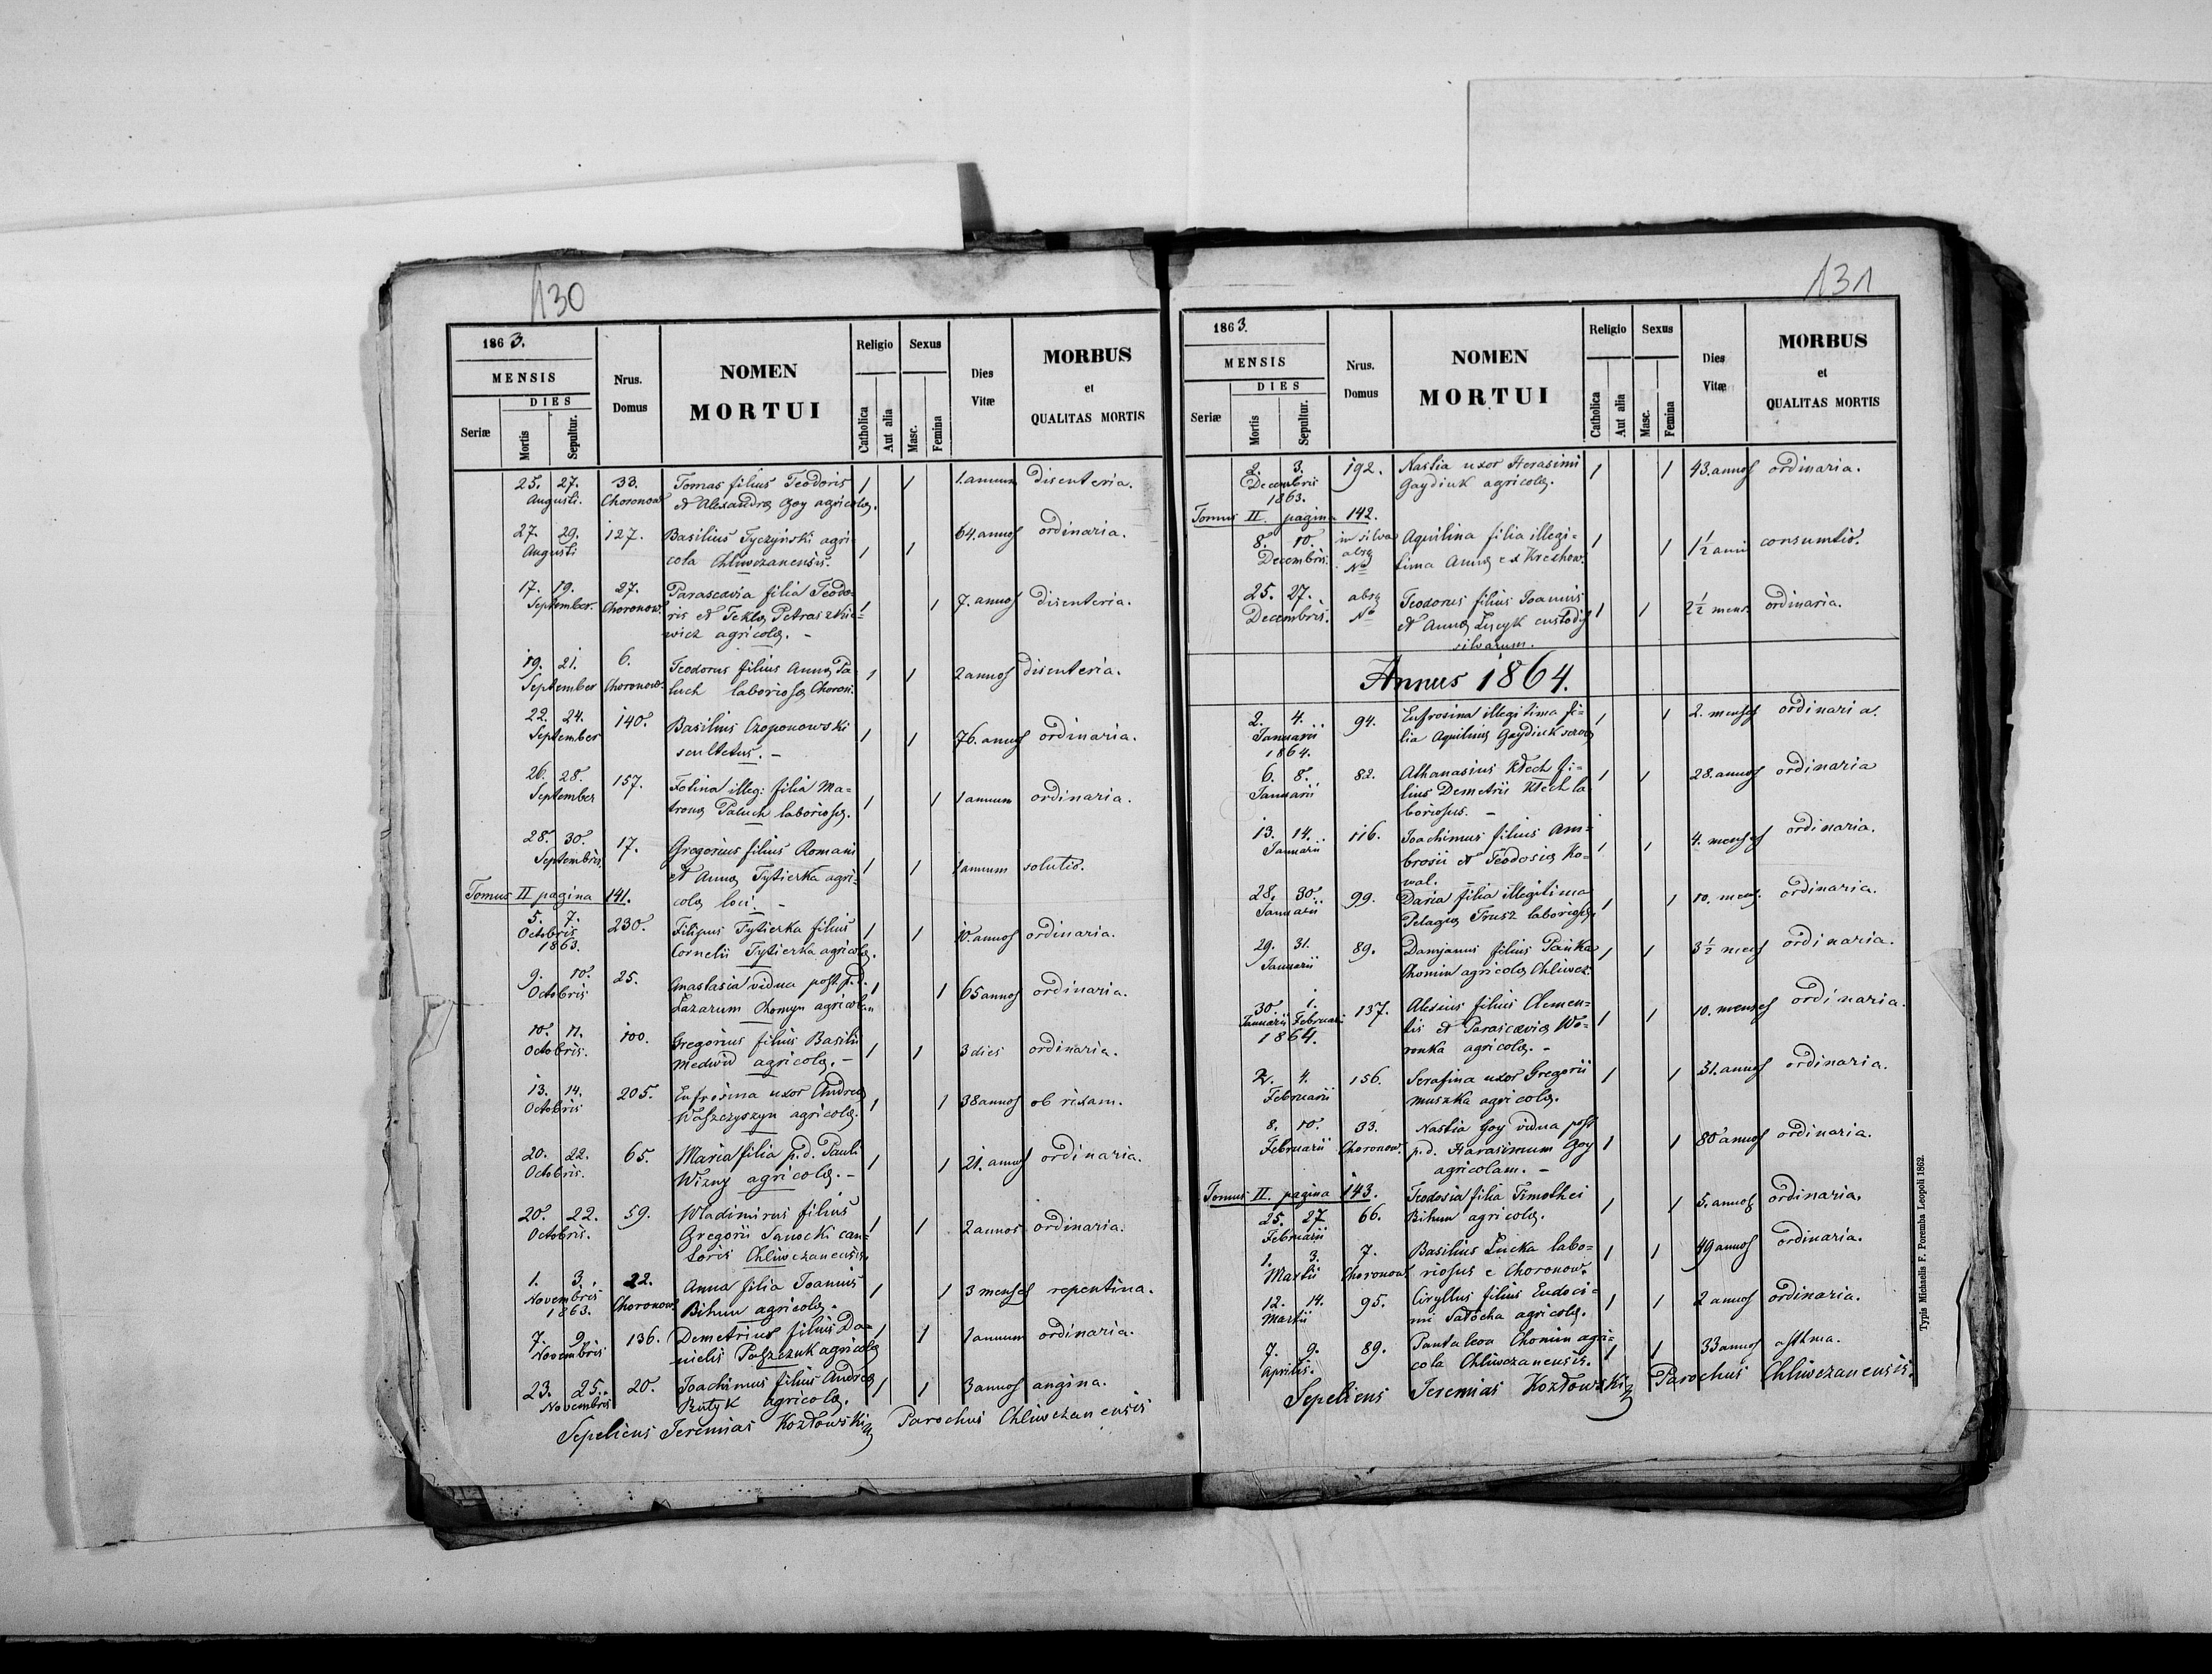 130
1863.
MENSIS
DIES
Seriæ Mortis Sepultur.
Nrus. Domus
NOMEN
MORTUI
Religio
Catholica Aut alia
Sexus
Masc. Femina
Dies Vitæ
MORBUS
et
QUALITAS MORTIS
25. 27. 33. Tomas filius Teodoris 1 1 1. annum disenteria.
Augusti. Choronow. et Alexandræ Goy agricolæ.
27. 29. 127. Basilius Tyczyński agri- 1 1 64. annos ordinaria.
Augusti cola Chliwczanensis.
17. 19. 27. Parascevia filia Teodo- 1 1 7. annos disenteria.
September. Choronow. ris et Teklæ Petraszkie-
wicz agricolæ. -
19. 21. 6. Teodorus filius Annæ Pa- 1 1 2 annos disenteria.
September Choronow. luch laboriosæ Choron.
22. 24. 140. Basilius Czoponowski 1 1 76. annos ordinaria.
September scultetus. -
26. 28. 157. Fotina illeg: filia Ma- 1 1 1 annum ordinaria.
September tronæ Paluch laboriosæ.
28. 30. 17. Gregorius filius Romani 1 1 1 annum solutio.
Septembris et Annæ Tytierka agri-
Tomus II pagina 141. colæ loci. -
5. 7. 230. Filipus Tytierka filius 1 1 10. annos ordinaria.
Octobris Cornelii Tytierka agricolæ.
1863.
9. 10. 25. Anastasia vidua post p.d. 1 1 65 annos ordinaria.
Octobris Lazarum Chomyn agricolam
10. 11. 100. Gregorius filius Basilii 1 1 3 dies ordinaria.
Octobris. Medwid agricolæ. -
13. 14. 205. Eufrosina uxor Andreæ 1 1 38 annos ob rixam.
Octobris Waszczyszyn agricolæ.
20. 22. 65. Maria filia p.d. Pauli 1 1 21. annos ordinaria.
Octobris. Wizny agricolæ. -
20. 22. 59. Wladimirus filius 1 1 2 annos ordinaria.
Octobris. Gregorii Sanocki can-
toris Chliwczanensis.
1. 3. 22. Anna filia Joannis 1 1 3 menses repentina.
Novembris Choronow. Bihun agricolæ.
1863.
7. 9. 136. Demetrius filius Da- 1 1 1 annum ordinaria.
Novembris nielis Paszczuk agricolæ
23. 25. 20. Joachimus filius Andreæ 1 1 3 annos angina.
Novembris Rutyk agricolæ.
Sepeliens Jeremias Kozłowski Parochus Chliwczanensis
131
1863.
MENSIS
DIES
Seriæ Mortis Sepultur.
Nrus. Domus
NOMEN
MORTUI
Religio
Catholica Aut alia
Sexus
Masc. Femina
Dies Vitæ
MORBUS
et
QUALITAS MORTIS
2. 3. 192. Nastia uxor Herasimi 1 1 43. annos ordinaria.
Decembris Gaydiuk agricolæ.
1863.
Tomus II. pagina 142.
8. 10. in silva Aquilina filia illegi- 1 1 1½ anni consumtio.
Decembris. absq No tima Annæ ex Krechow.
25. 27. absq Teodorus filius Joannis 1 1 2½ mens. ordinaria.
Decembris. No et Annæ Łucyk custodis
silvarum.
Annus 1864.
2. 4. 94. Eufrosina illegitima fi- 1 1 2. menses ordinaria.
Januarii lia Aquilinæ Gaydiuk
1864.
6. 8. 82. Athanasius Klech fi- 1 1 28. annos ordinaria
Januarii lius Demetrii Klech la
boriosus. -
13. 14. 116. Joachimus filius Am- 1 1 4. menses ordinaria.
Januarii brosii et Teodosiæ Ko-
wal. -
28. 30. 99. Daria filia illegitima 1 1 10. mens. ordinaria.
Januarii Pelagiæ Trusz laboriosæ.
29. 31. 89. Damjanus filius Pańka 1 1 3½ mens ordinaria.
Januarii Chomin agricolæ Chliwcz.
30. 1. 137. Alexius filius Clemen- 1 1 10. menses ordinaria.
Januarii Februarii tis et Parasceviæ Wo-
1864. ronka agricolæ. -
2. 4. 156. Serafina uxor Gregorii 1 1 31. annos ordinaria.
Februarii Muszka agricolæ.
8. 10. 33. Nastia Goy vidua post 1 1 80 annos ordinaria.
Februarii Choronow. p.d. Harasimum Goy
agricolam. -
Tomus II. pagina 143. Teodosia filia Timothei 1 1 5. annos ordinaria.
25. 27 66. Bihun agricolæ.
Februarii
1. 3. 7. Basilius Łucka labo- 1 1 49 annos ordinaria.
Martii Choronow. riosus e Choronow.
12. 14. 95. Ciryllus filius Eudoci- 1 1 2 annos ordinaria.
Martii mi Satocha agricolæ.
7. 9. 89. Pantaleon Chomin agri- 1 1 33 annos asthma.
Aprilis. cola Chliwczanensis.
Sepeliens Jeremias Kozłowski Parochus Chliwczanensis.
Typis Michaelis F. Poremba Leopoli 1862.